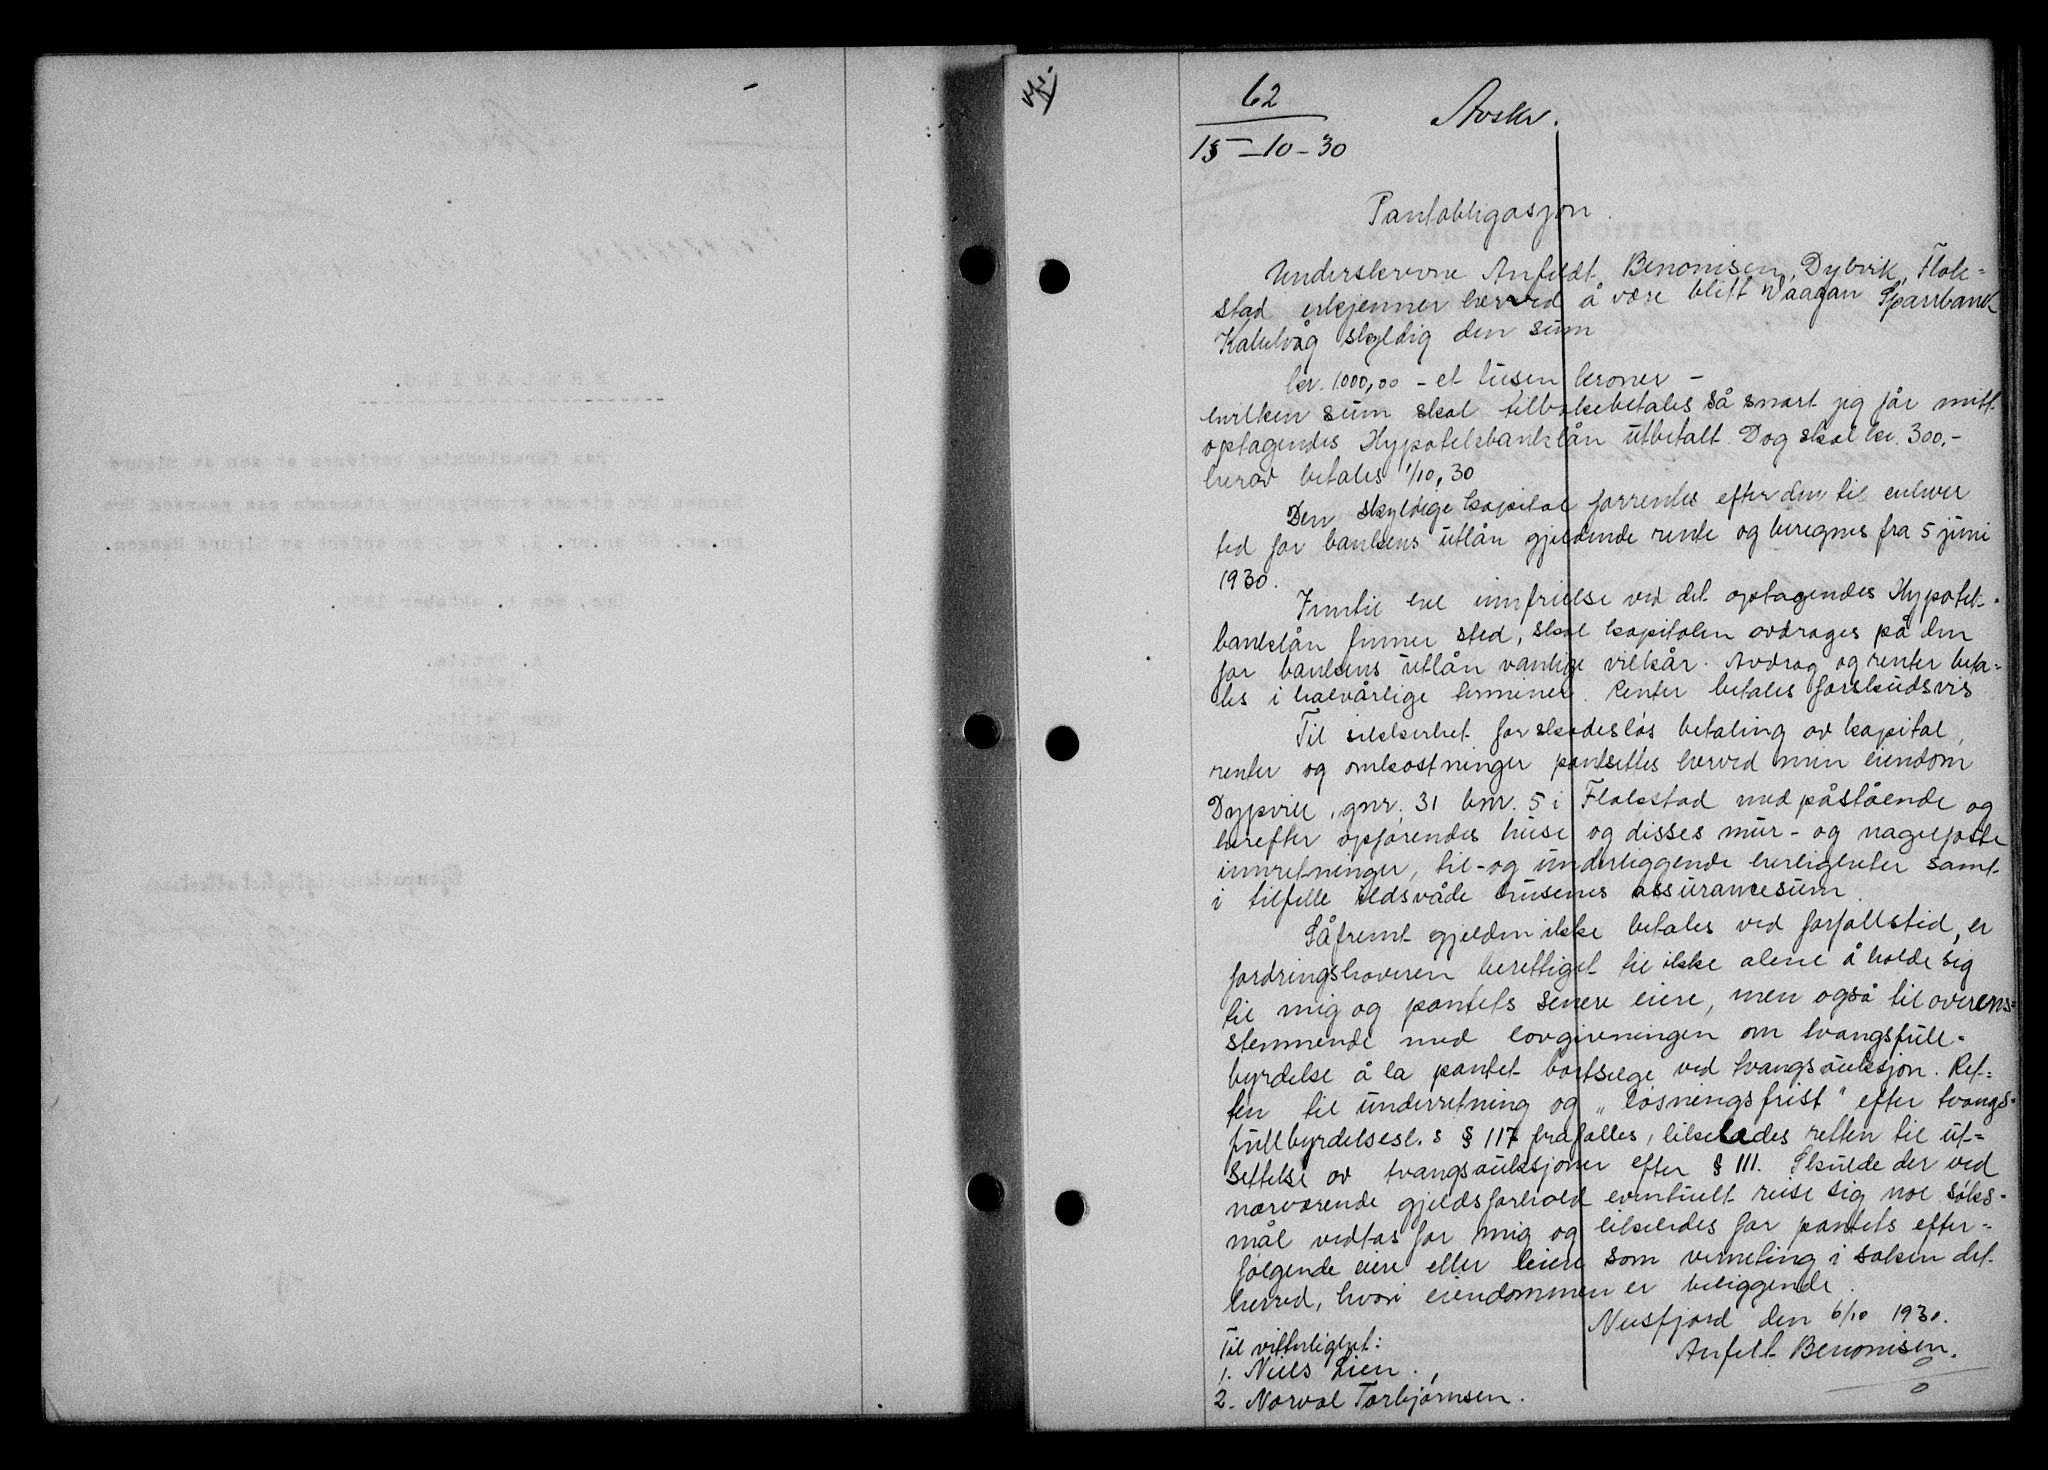 62
15-10-30
Avskr.
Pantobligasjon.
Underskrevne Anfeldt Benonisen, Dybvik, Flak=
stad erkjenner herved å være blitt Vaagan Sparebank
Kabelvåg skyldig den sum
kr. 1.000,00 - et tusen kroner -
hvilken sum skal tilbakebetales så snart jeg får mitt
optagendes Hypotekbanklån utbetalt. Dog skal kr. 300,-
herav betales 1/10, 30
Den skyldige kapital forrentes efter den til enhver
tid for bankens utlån gjeldende rente og beregnes fra 5 juni
1930.
Inntil hel innfrielse ved det optagendes Hypotek-
banklån finner sted, skal kapitalen avdrages på den
for bankens utlån vanlige vilkår. Avdrag og renter beta=
les i halvårlige terminer. Renter betales forskudsvis
Til sikkerhet for skadesløs betaling av kapital,
renter og omkostninger pantsettes herved min eiendom
Dypvik, gnr. 31 bnr. 5 i Flakstad med påstående og
herefter opførendes huse og disses mur- og nagelfaste
innretninger, til- og underliggende herligheter samt
i tilfelle ildsvåde husenes assurancesum.
Såfremt gjelden ikke betales ved forfallstid, er
fordringshaveren berettiget til ikke alene å holde sig
til mig og pantets senere eiere, men også til overens=
stemmende med lovgivningen om tvangsfull-
byrdelse å la pantet bortselge ved tvangsauksjon. Ret=
ten til underretning og "løsningsfrist" efter tvangs-
fullbyrdelsesl. s § 117 frafalles, likeledes retten til ut=
settelse av tvangsauksjoner efter § 111. Skulde der ved
nærværende gjeldsforhold eventuelt reise sig noe søks-
mål vedtas for mig og likeledes for pantets efter=
følgende eiere eller leiere som verneting i saken det
herred, hvori eiendommen er beliggende.
Nusfjord den 6/10 1930.
Anfelt Benonisen.
Til vitterlighet:
1. Niels Lien.
2. Norval Torbjørnsen.